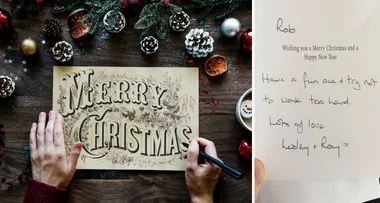 MERRY
CHRISTMAS
Rob
Wishing you a Merry Christmas and a
Happy New Year
Have a fun one & try not
to work too hard.
Lots of love
Lesley + Rory x